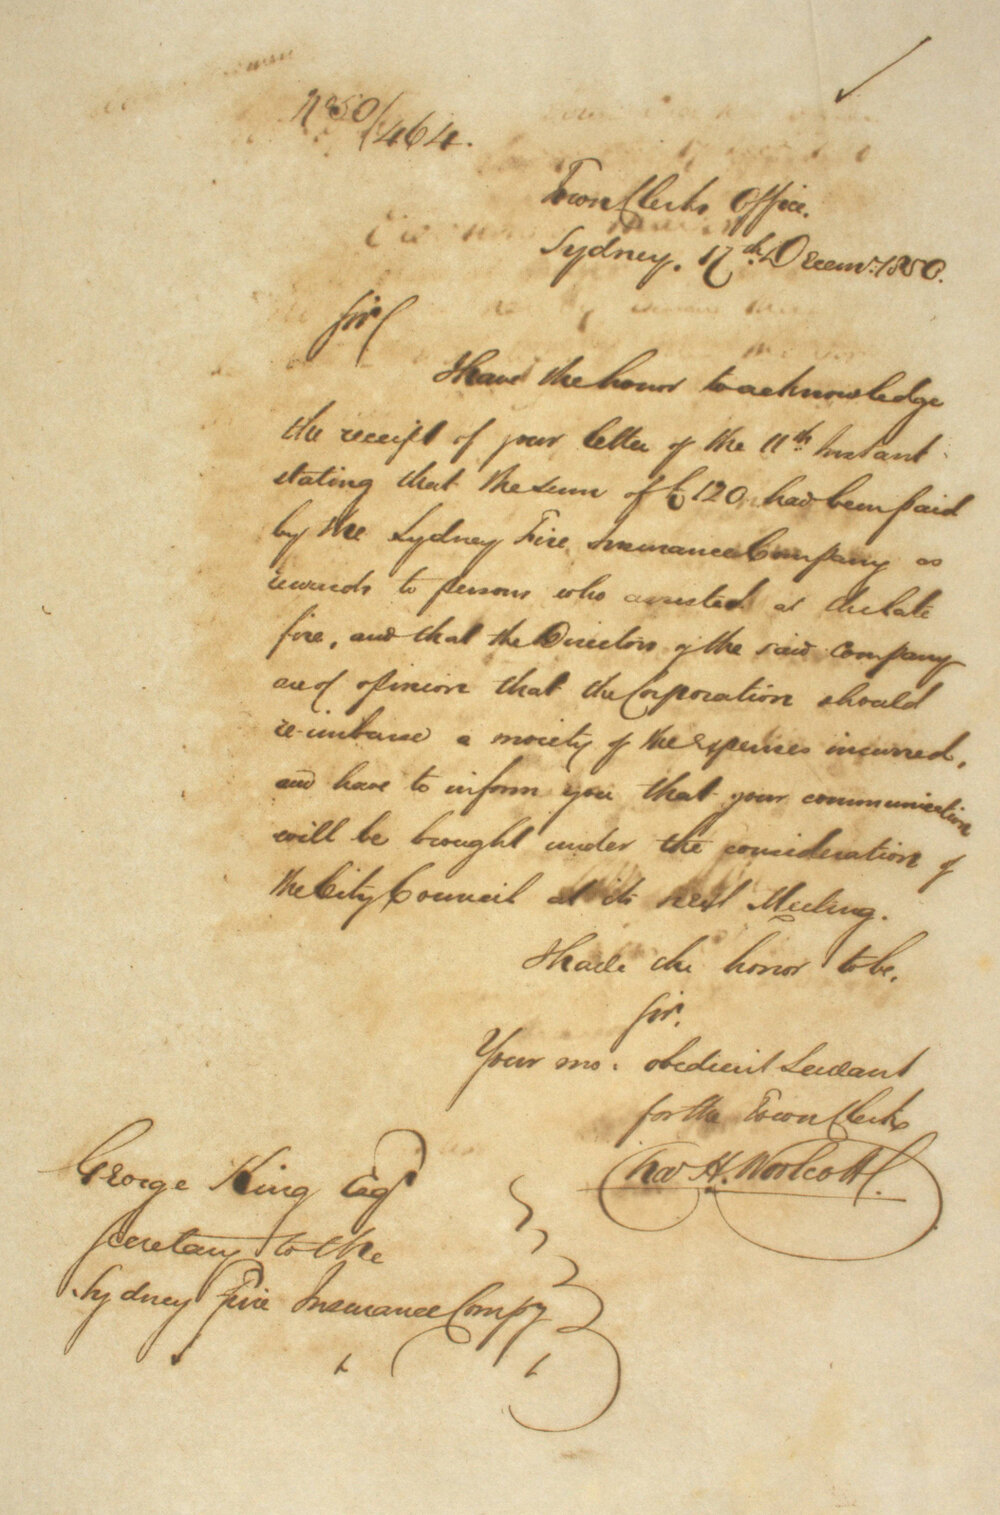 No 50/464.
Town Clerks Office.
Sydney, 17th Decemr. 1850.
Sir
I have the honor to acknowledge
the receipt of your letter of the 11th Instant
stating that the sum of £120 had been paid
by the Sydney Fire Insurance Company as
rewards to persons who assisted at the late
fire, and that the Directors of the said Company
are of opinion that the Corporation should
re-imburse a moiety of the expenses incurred,
and have to inform you that your communication
will be brought under the consideration of
the City Council at its next Meeting.
I have the honor to be,
Sir,
Your mo. obedient Servant
for the Town Clerk
Chas H. Woolcott.
George King Esqr
Secretary to the
Sydney Fire Insurance Compy